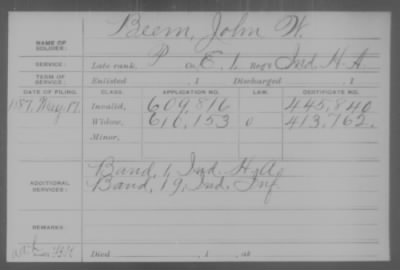 NAME OF SOLDIER: Beem, John W.
SERVICE: Late rank, P Co. E, 1, Reg't Ind. H. A.
TERM OF SERVICE: Enlisted , 1 Discharged , 1
DATE OF FILING. CLASS. APPLICATION NO. LAW. CERTIFICATE NO.
1887, May 17. Invalid, 609,816 445,840
Widow, 610,153 0 413,762.
Minor,
ADDITIONAL SERVICES: Band, 1, Ind. H. A.
Band, 19, Ind. Inf
REMARKS:
Died , 1 , at